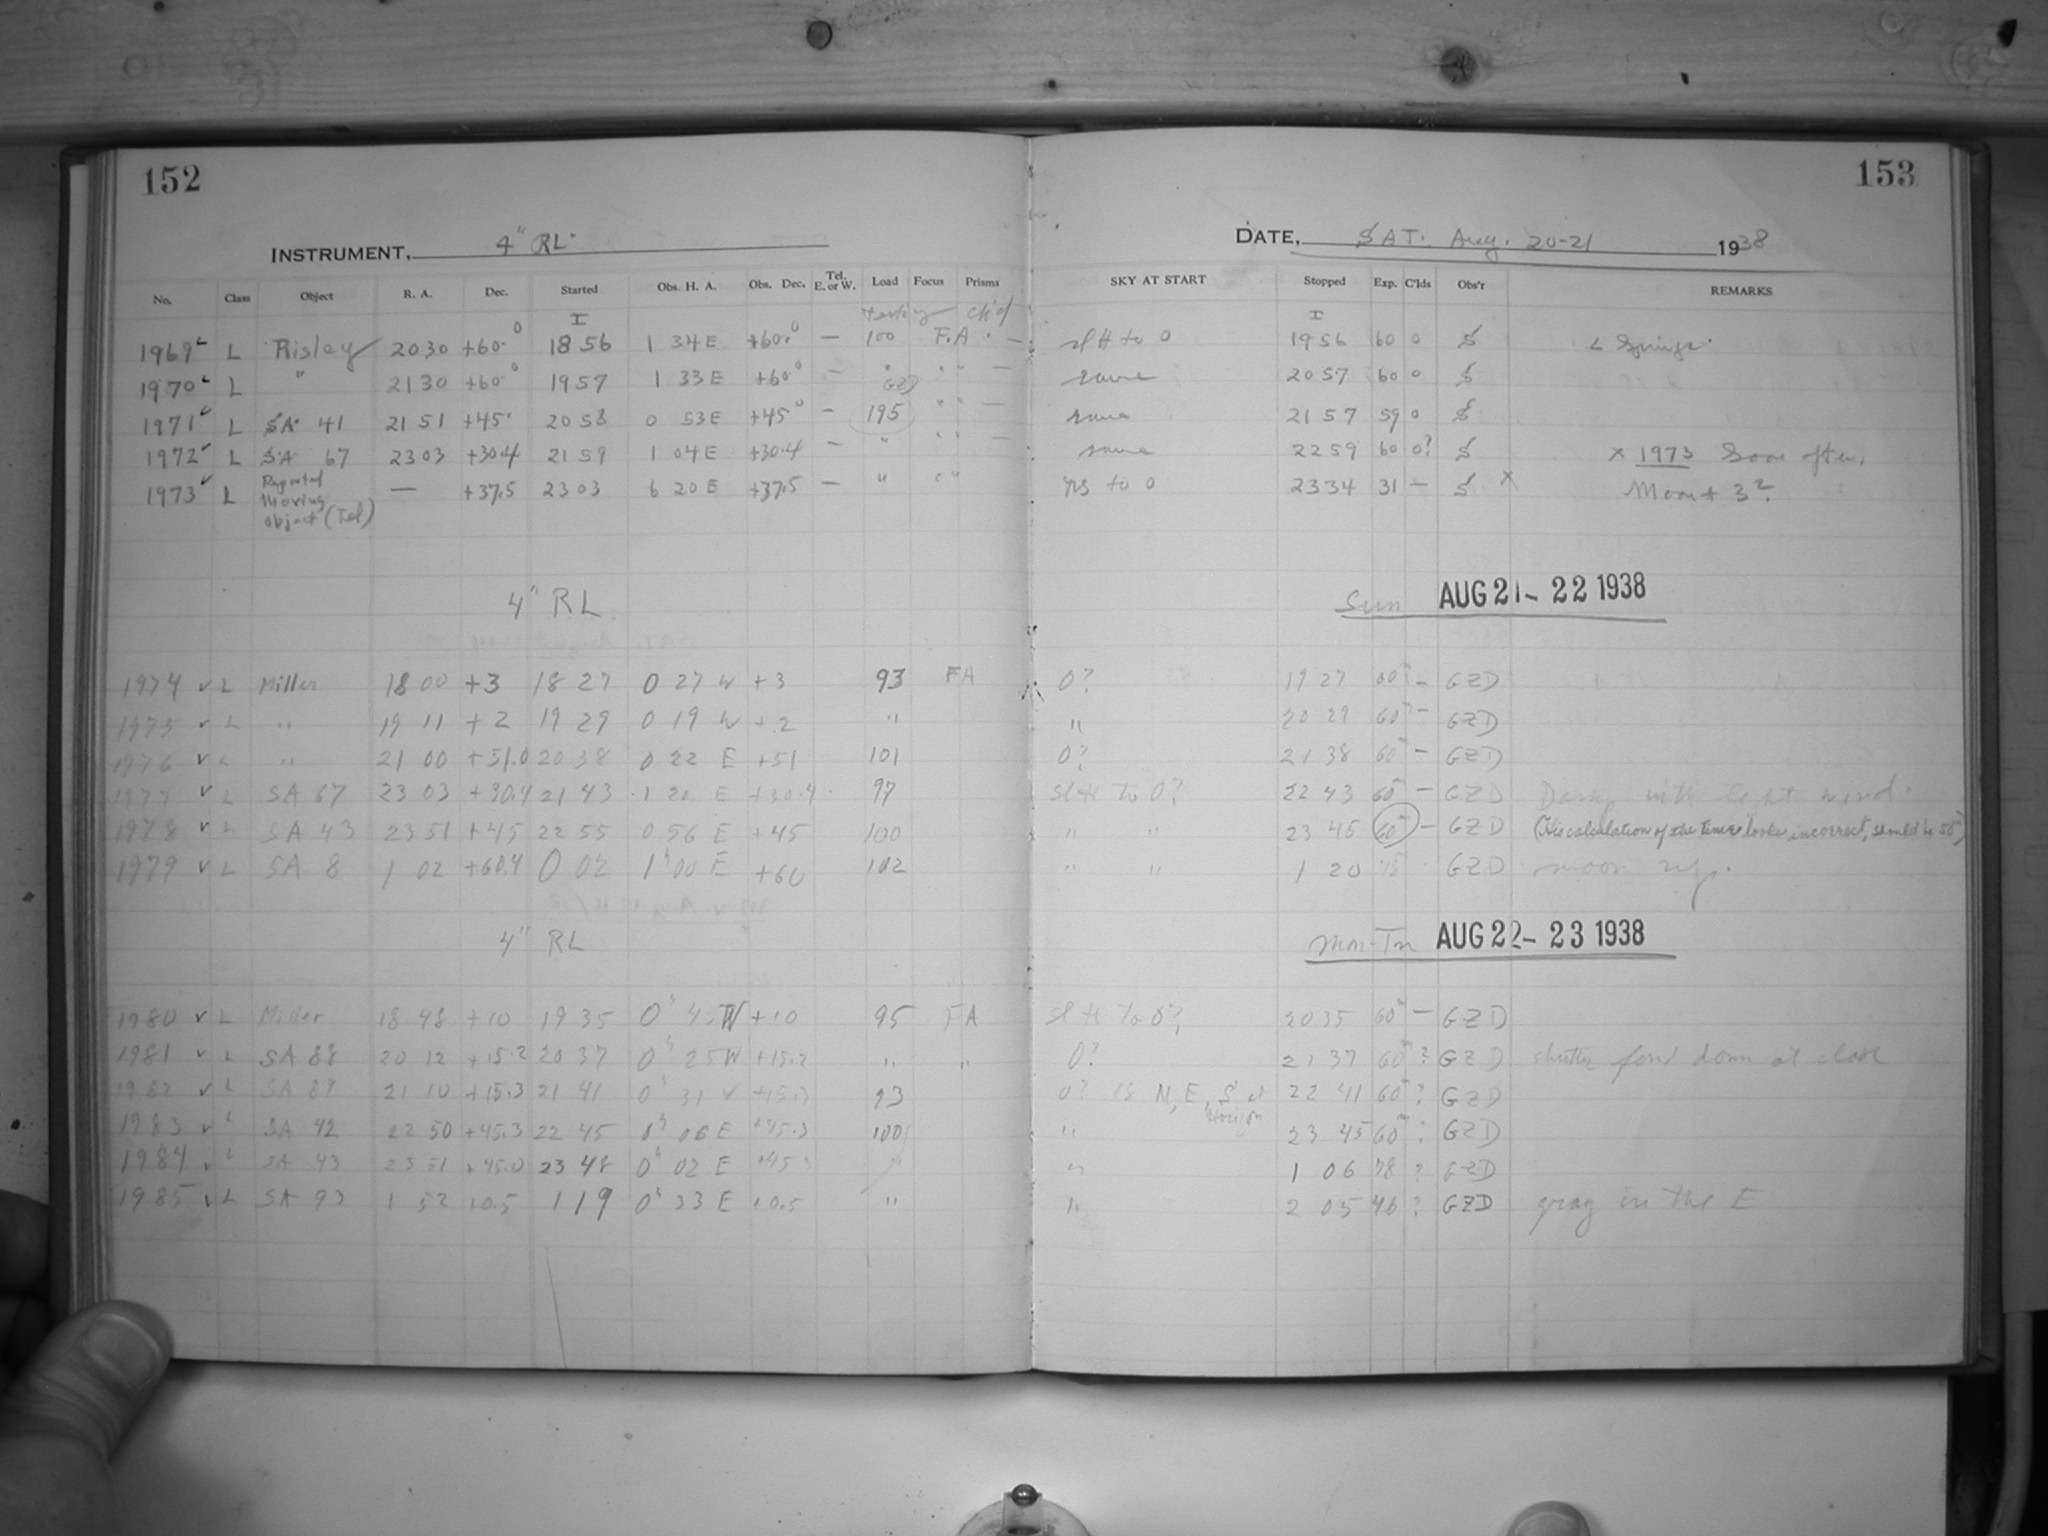 152
153
INSTRUMENT, 4" RL
DATE, SAT. Aug. 20-21 1938
No. Class Object R. A. Dec. Started Obs. H. A. Obs. Dec. Tel. E. or W. Load Focus Prisms SKY AT START Stopped Exp. C'lds Obs'r REMARKS
I Testing I
1969 L Risley 2030 +60.0 1856 1 34E +60.0 — 100 F.A. — sl H to 0 1956 60 0 S
1970 L " 2130 +60.0 1957 1 33E +60.0 — " " " — same 2057 60 0 S
GZD
1971 L SA 41 2151 +45. 2058 0 53E +45.0 — 195 " " — same 2157 59 0 S
1972 L SA 67 2303 +30.4 2159 1 04E +30.4 — " " " — same 2259 60 0? S x 1973 Soon after
1973 L Reported Moving object (Tel) — +37.5 2303 6 20E +37.5 — " " " to 0 2334 31 — S x
4" RL
Sun AUG 21-22 1938
1974 v L Miller 18 00 +3 18 27 0 27 W +3 93 FA 0? 19 27 60m — GZD
1975 v L " 19 11 +2 19 29 0 19 W +2 " " 20 29 60m — GZD
1976 v L " 21 00 +51.0 20 38 0 22 E +51 101 0? 21 38 60m — GZD
1977 v L SA 67 23 03 +30.4 21 43 1 20 E +30.4 97 sl H to 0? 22 43 60m — GZD with light wind.
1978 v L SA 43 23 51 +45 22 55 0 56 E +45 100 " " 23 45 60m — GZD (His calculation of the times looks incorrect, should be 50m)
1979 v L SA 8 1 02 +60.4 0 02 1h 00 E +60 102 " " 1 20 78 GZD moon up.
4" RL
Mon-Tu AUG 22-23 1938
1980 v L Miller 18 48 +10 19 35 0h 45 W +10 95 FA sl H to 0? 20 35 60m — GZD
1981 v L SA 88 20 12 +15.2 20 37 0h 25 W +15.2 " " 0? 21 37 60m ? GZD shutter down at close
1982 v L SA 89 21 10 +15.3 21 41 0h 31 W +15.3 93 0? N, E, S at Horizon 22 41 60m ? GZD
1983 v L SA 42 22 50 +45.3 22 45 0h 06 E +45.3 100 " 23 45 60m : GZD
1984 v L SA 43 23 51 +45.0 23 48 0h 02 E +45 " " 1 06 78 ? GZD
1985 v L SA 93 1 52 +0.5 1 19 0h 33 E +0.5 " " 2 05 46 ? GZD gray in the E